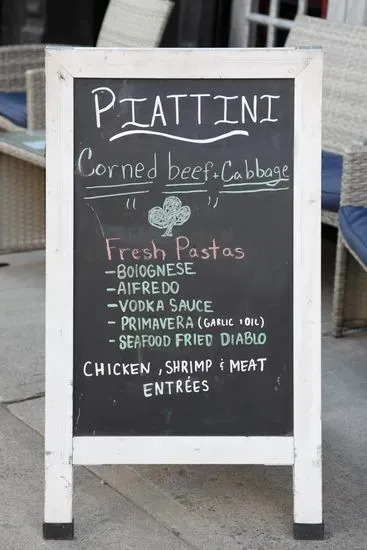 PIATTINI
Corned beef + Cabbage
" "
Fresh Pastas
- BOLOGNESE
- ALFREDO
- VODKA SAUCE
- PRIMAVERA (GARLIC & OIL)
- SEAFOOD FRIED DIABLO
CHICKEN, SHRIMP & MEAT
ENTRÉES